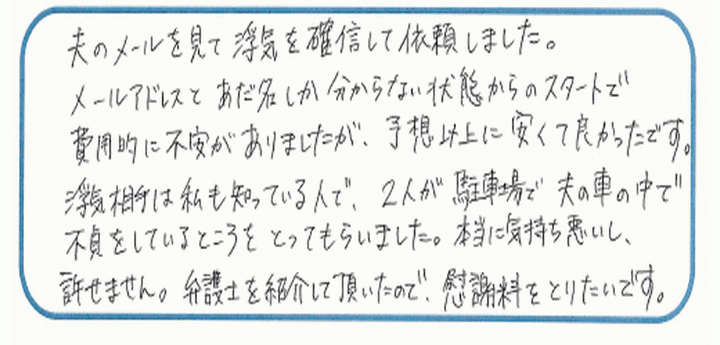 夫のメールを見て浮気を確信して依頼しました。
メールアドレスとあだ名しか分からない状態からのスタートで
費用的に不安がありましたが、予想以上に安くて良かったです。
浮気相手は私も知っている人で、2人が駐車場で夫の車の中で
不貞をしているところをとってもらいました。本当に気持ち悪いし、
許せません。弁護士を紹介して頂いたので、慰謝料をとりたいです。